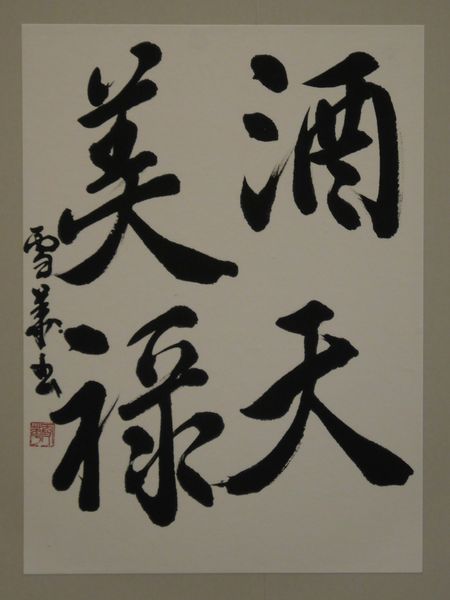 酒天
美禄
雪華書